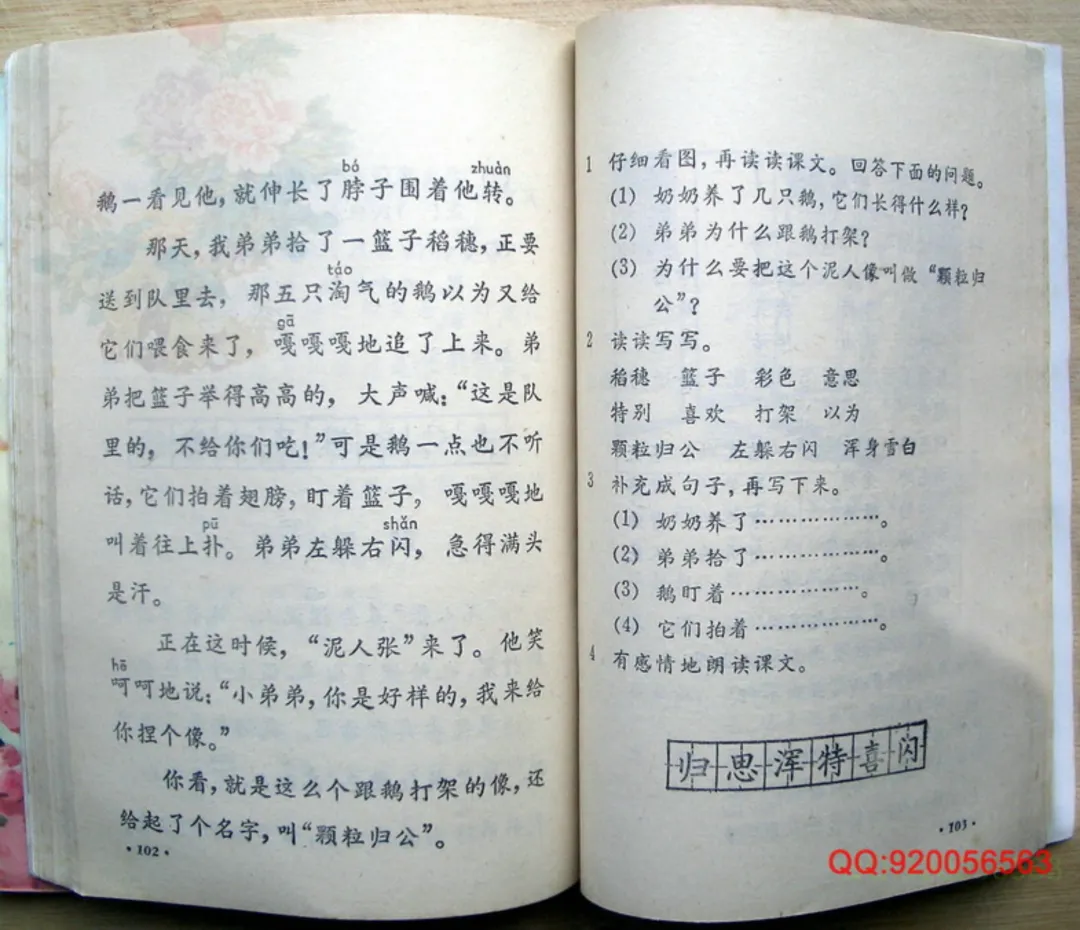 bó zhuàn
鹅一看见他,就伸长了脖子围着他转。
那天,我弟弟拾了一篮子稻穗,正要
táo
送到队里去,那五只淘气的鹅以为又给
gā
它们喂食来了,嘎嘎嘎地追了上来。弟
弟把篮子举得高高的,大声喊:“这是队
里的,不给你们吃!”可是鹅一点也不听
话,它们拍着翅膀,盯着篮子,嘎嘎嘎地
pū shǎn
叫着往上扑。弟弟左躲右闪,急得满头
是汗。
正在这时候,“泥人张”来了。他笑
hē
呵呵地说:“小弟弟,你是好样的,我来给
你捏个像。”
你看,就是这么个跟鹅打架的像,还
给起了个名字,叫“颗粒归公”。
·102·
1 仔细看图,再读读课文。回答下面的问题。
(1) 奶奶养了几只鹅,它们长得什么样?
(2) 弟弟为什么跟鹅打架?
(3) 为什么要把这个泥人像叫做“颗粒归
公”?
2 读读写写。
稻穗 篮子 彩色 意思
特别 喜欢 打架 以为
颗粒归公 左躲右闪 浑身雪白
3 补充成句子,再写下来。
(1) 奶奶养了………………。
(2) 弟弟拾了………………。
(3) 鹅盯着………………。
(4) 它们拍着………………。
4 有感情地朗读课文。
归思浑特喜闪
·103·
QQ:920056563